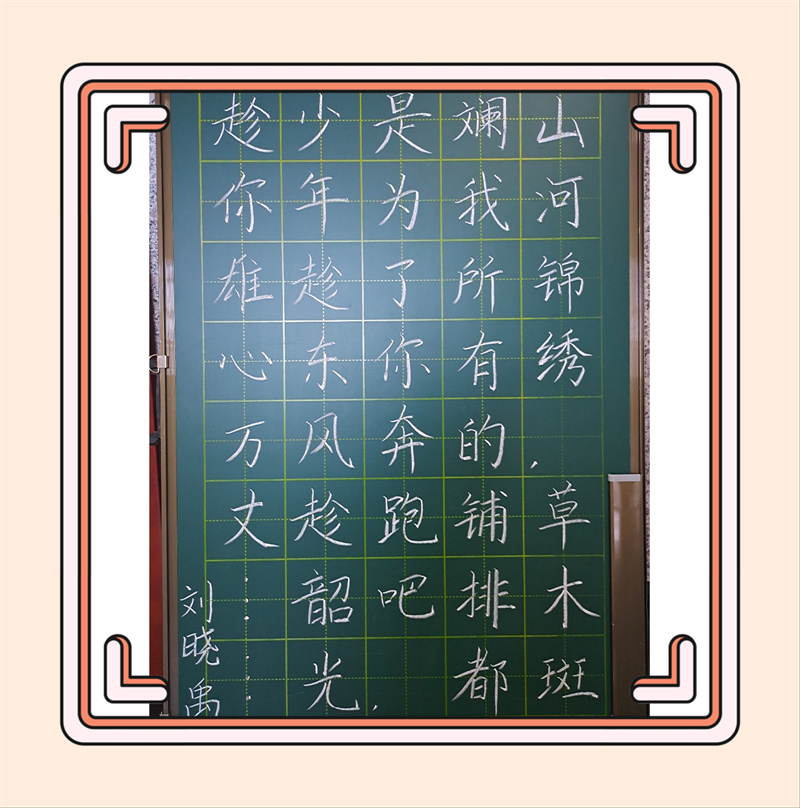 山河锦绣，草木斑
斓我所有的铺排都
是为了你奔跑吧
少年趁东风趁韶光，
趁你雄心万丈……
刘晓禹